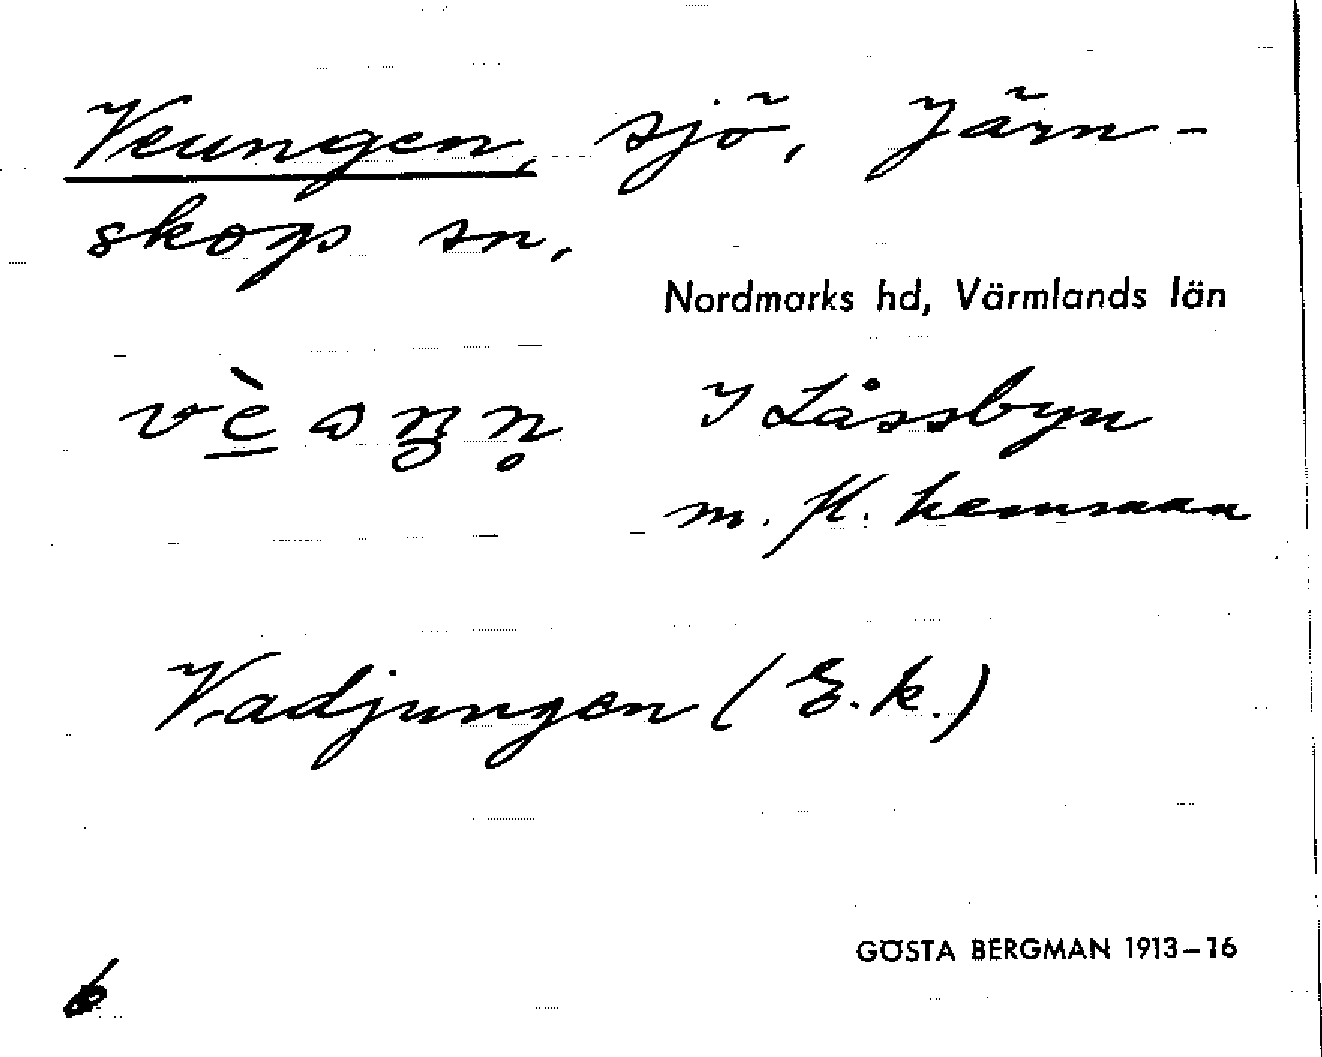 Veungen, sjö, Järn-
skogs sn,
Nordmarks hd, Värmlands län
vè̱ ɷŋn̥ I Låssbyn
m. fl. hemman
Vadjungen (E.k.)
GÖSTA BERGMAN 1913–16